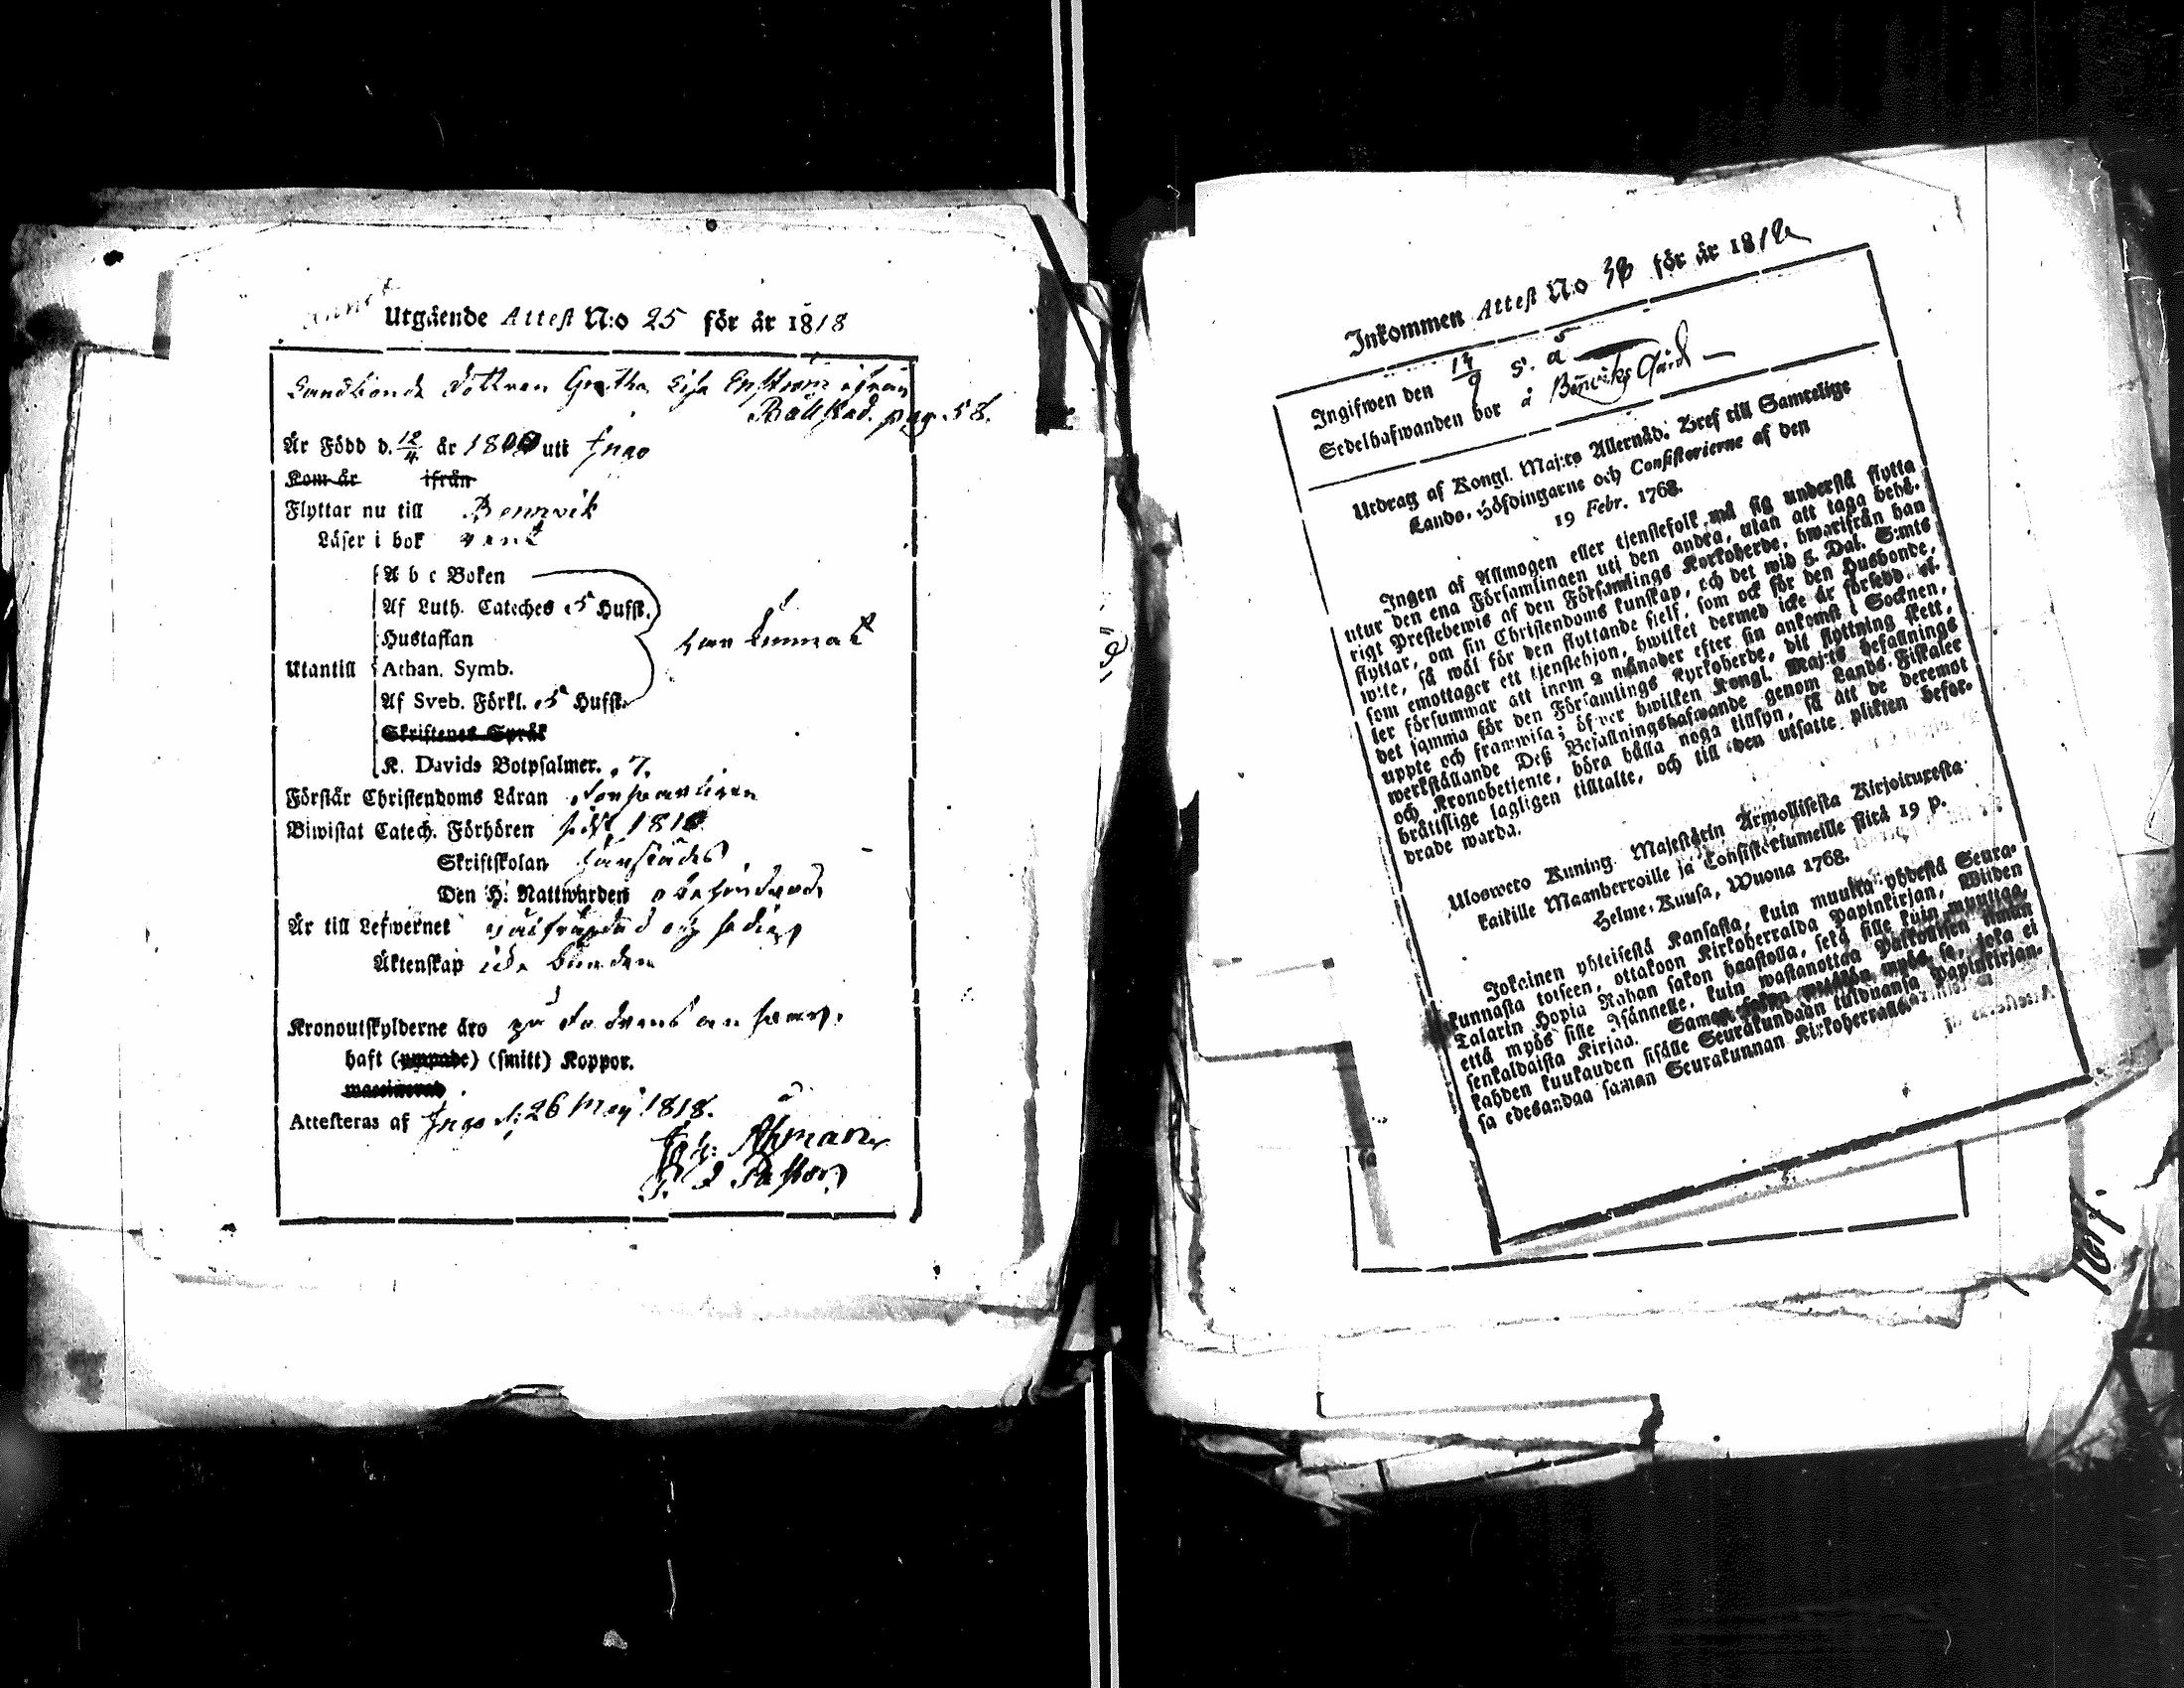 Utgående Attest N:o 25 för år 1818
Landbonde Dottren Gretha Lisa Enström ifrån
Ballstad. pag. 58.
Är Född d. 12/4 år 1800 uti Ingo
Kom år ifrån
Flyttar nu till Bennvik
Läser i bok rent
A b c Boken
Af Luth. Cateches 5 Hufst.
Hustaflan
har lärnat
Utantill Athan. Symb.
Af Sveb. Förkl. 5 Hufst.
Skriftenes Språk
K. Davids Botpsalmer. 7.
Förstår Christendoms Läran försvarligen
Biwistat Catech. Förhören sidst 1818
Skriftskolan härstädes
Den H. Nattwarden obehindrad
Är till Lefwernet välfrägdad och sedig
Äktenskap icke bunden
Kronoutskylderne äro på fadrens ansvar.
haft (ympade) (smitt) Koppor.
vaccinerad
Attesteras af Ingo d: 26 Maij 1818.
Åhman
Pastor
Inkommen Attest N:o 38 för år 1818
Ingifwen den 14/9 s. å
Sedelhafwanden bor å Bennviks Gård
Utdrag af Kongl. Maj:ts Allernåd. Bref till Samtelige
Lands-Höfdingarne och Consistorierne af den
19 Febr. 1768.
Ingen af Allmogen eller tjenstefolk må sig understå flytta
utur den ena Församlingen uti den andra, utan att taga behö-
rigt Prestebewis af den Församlings Kyrkoherde, hwarifrån han
flyttar, om sin Christendoms kunskap, och det wid 5. Dal. S:mts
wite, så wäl för den flyttande sielf, som ock för den Husbonde,
som emottager ett tjenstehjon, hwilket dermed icke är försedd, el-
ler försummar att inom 2 månader efter sin ankomst i Socknen,
det samma för den Församlings Kyrkoherde, dit flyttning skett,
uppte och framwisa; öfwer hwilken Kongl. Maj:ts befallnings
werkställande Deß Befallningshafwande genom Lands-Fiskaler
och Kronobetjente, böra hålla noga tillsyn, så att de deremot
bråttslige lagligen tilltalte, och till den utsatte plikten beför-
drade warda.
Ulosweto Kuning. Majestätin Armollisesta Kirjoituxesta
kaikille Maanherroille ja Consistoriumeille sitä 19 p.
Helme-Kuusa, Wuona 1768.
Jokainen yhteisestä Kansasta, kuin muutta yhdestä Seura-
kunnasta toiseen, ottakoon Kirkoherralda Papinkirjan, Wiiden
Talarin Hopia Rahan sakon haastolla, sekä sille kuin muuttaa,
että myös sille Isännelle, kuin wastanottaa Palkollisen ilman
senkaldaista Kirjaa. Saman sakon myös se, joka ei
kahden kuukauden sisälle Seurakundaan tulduansa Papinkirjan-
sa edesandaa saman Seurakunnan Kirkoherralle
1817.